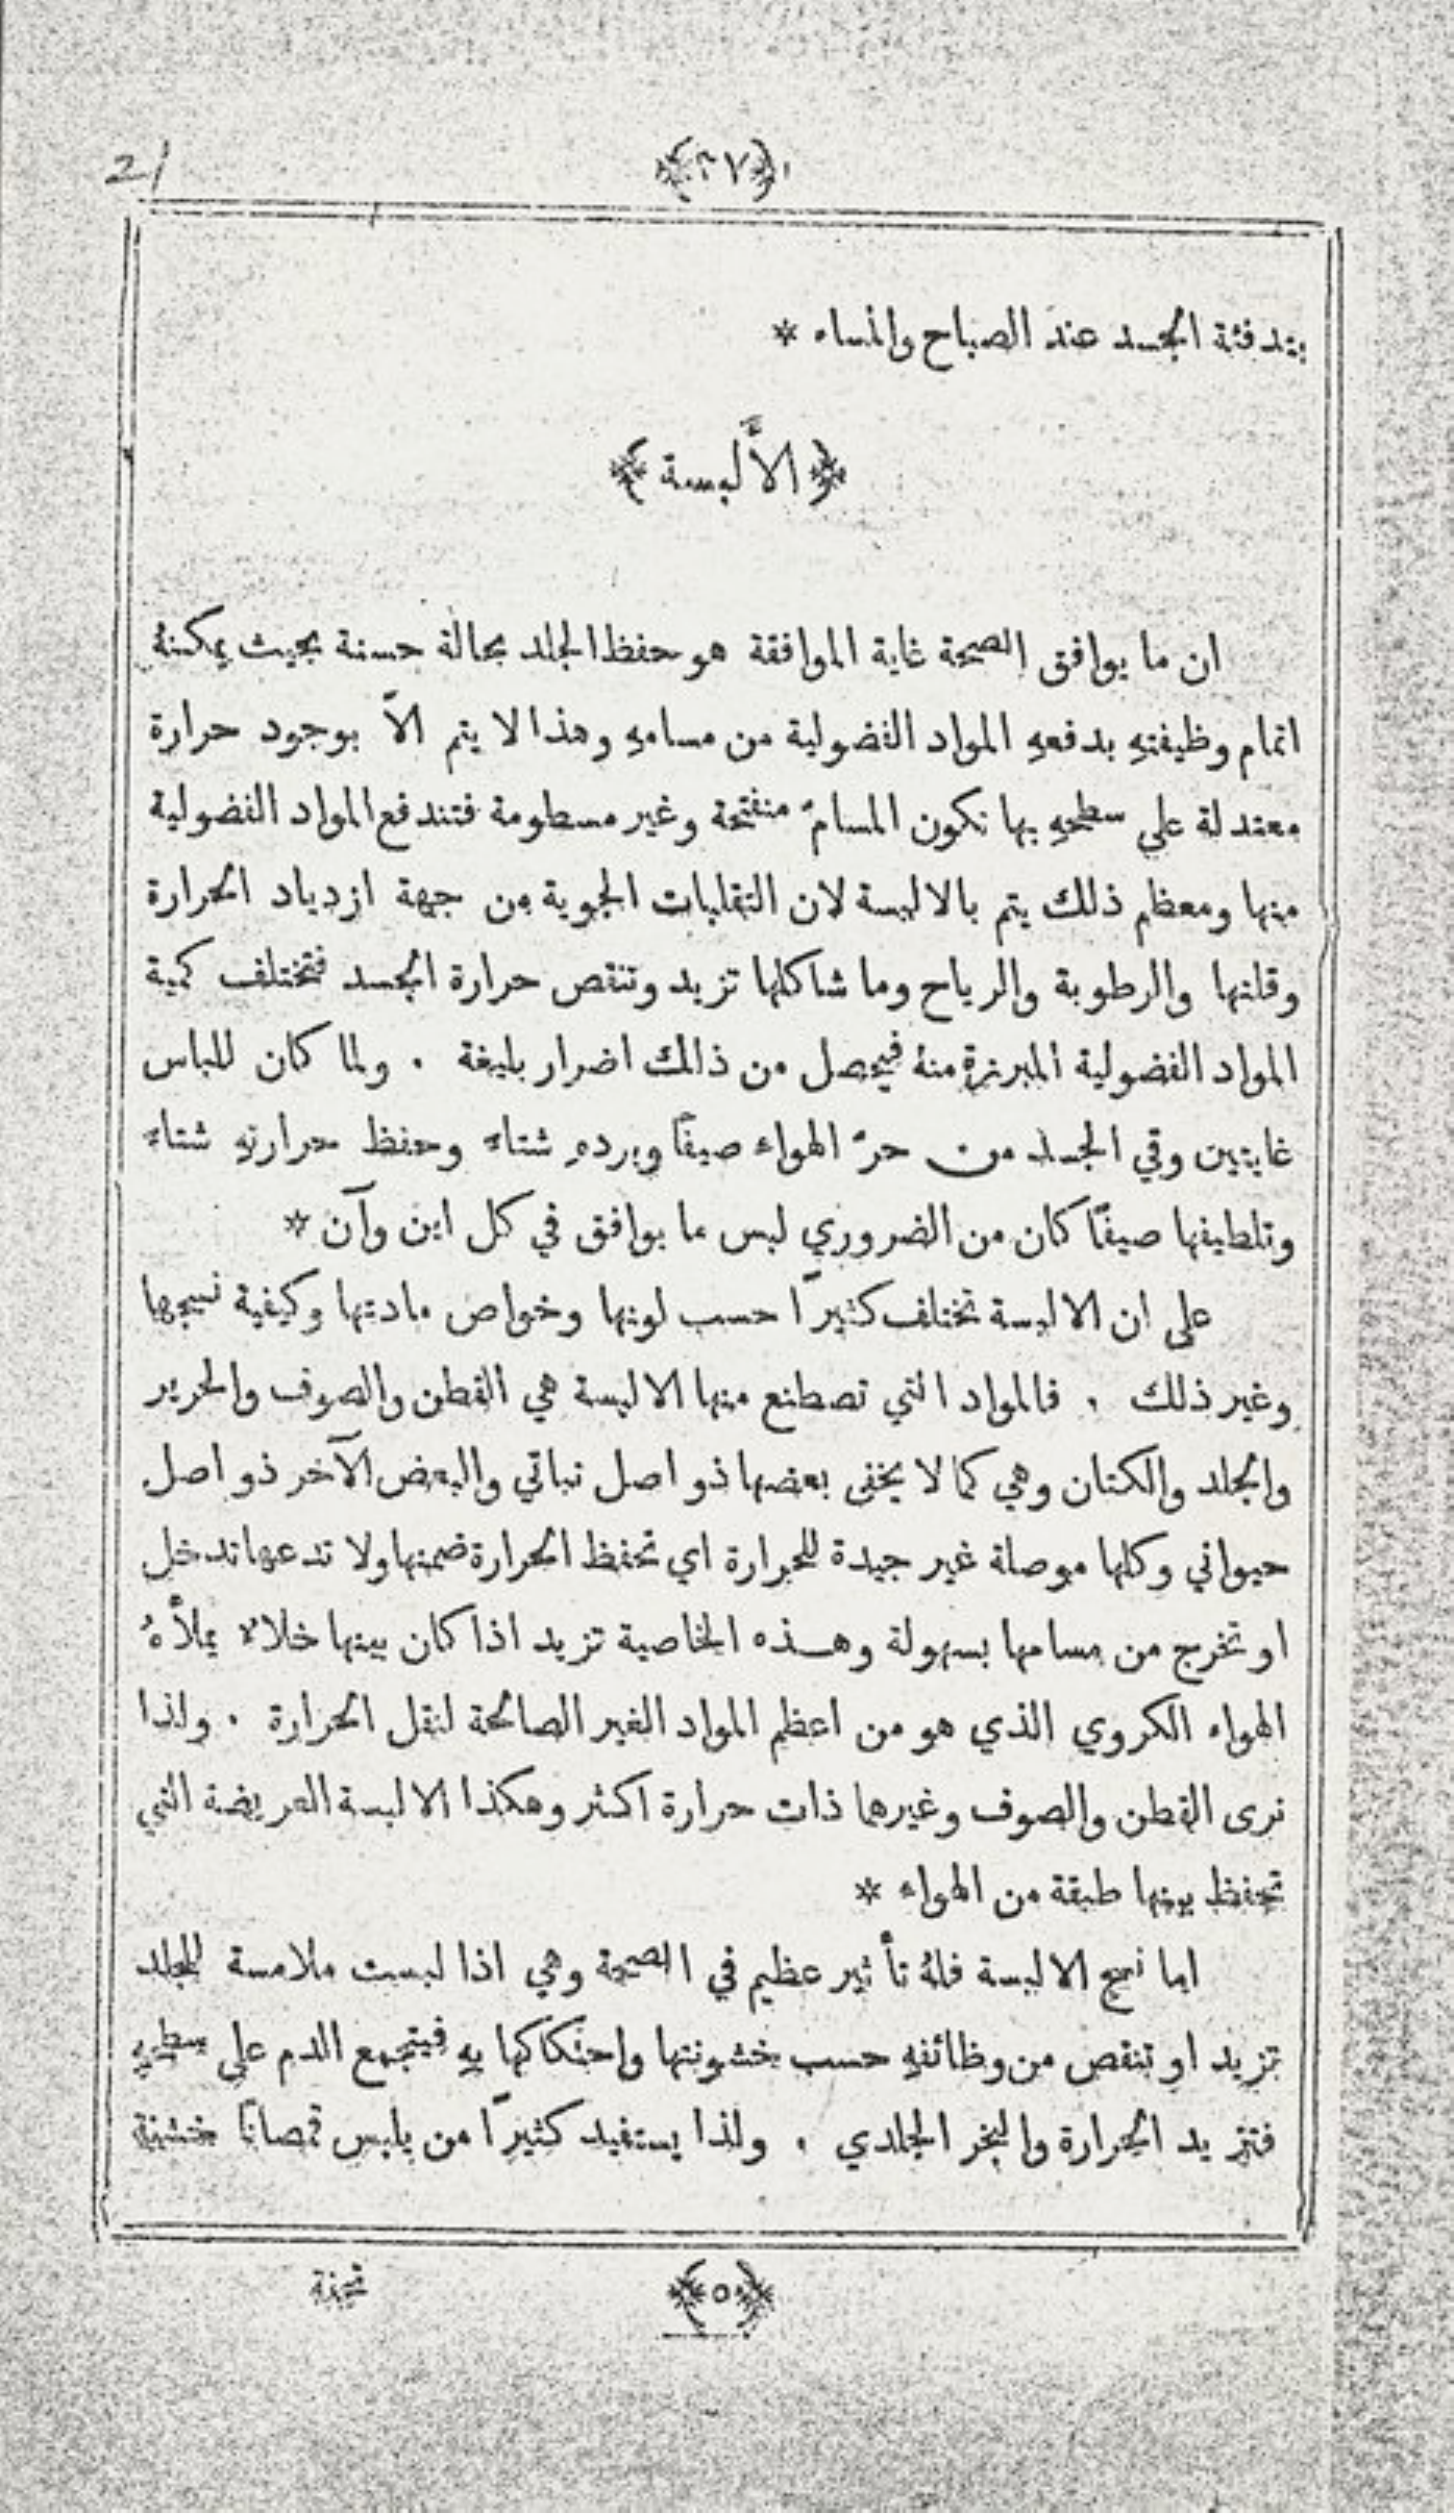 21
﴿٣٧﴾
بتدفئة الجسد عند الصباح والمساء *
﴿الأَلبسة﴾
ان ما يوافق الصحة غاية الموافقة هو حفظ الجلد بحالة حسنة بحيث يمكنهُ
اتمام وظيفتهِ بدفعهِ المواد الفضولية من مسامهِ وهذا لا يتم الاَّ بوجود حرارة
معتدلة علي سطحهِ بها تكون المسامّ منفتحة وغير مسطومة فتندفع المواد الفضولية
منها ومعظم ذلك يتم بالالبسة لان التقلبات الجوية من جهة ازدياد الحرارة
وقلتها والرطوبة والرياح وما شاكلها تزيد وتنقص حرارة الجسد فتختلف كمية
المواد الفضولية المبرزة منهُ فيحصل من ذالك اضرار بليغة . ولما كان للباس
غايتين وقي الجسد من حرّ الهواء صيفًا وبردهِ شتاءً وحفظ حرارتهِ شتاءً
وتلطيفها صيفًا كان من الضروري لبس ما يوافق في كل اين وآن *
على ان الالبسة تختلف كثيرًا حسب لونها وخواص مادتها وكيفية نسجها
وغير ذلك . فالمواد التي تصطنع منها الالبسة هي القطن والصوف والحرير
والجلد والكتان وهي كما لا يخفى بعضها ذو اصل نباتي والبعض الآخر ذو اصل
حيواني وكلها موصلة غير جيدة للحرارة اي تحفظ الحرارة ضمنها ولا تدعها تدخل
او تخرج من مسامها بسهولة وهـذه الخاصية تزيد اذا كان بينها خلاءٌ يملأهُ
الهواء الكروي الذي هو من اعظم المواد الغير الصالحة لنقل الحرارة . ولذا
نرى القطن والصوف وغيرهما ذات حرارة اكثر وهكذا الالبسة العريضة التي
تحفظ بينها طبقة من الهواء *
اما نسج الالبسة فلهُ تأثير عظيم في الصحة وهي اذا لبست ملامسة للجلد
تزيد او تنقص من وظائفهِ حسب خشونتها واحتكاكها بهِ فيتجمع الدم على سطحهِ
فتزيد الحرارة والبخر الجلدي . ولذا يستفيد كثيرًا من يلبس قمصانًا خشنة
﴿٥﴾